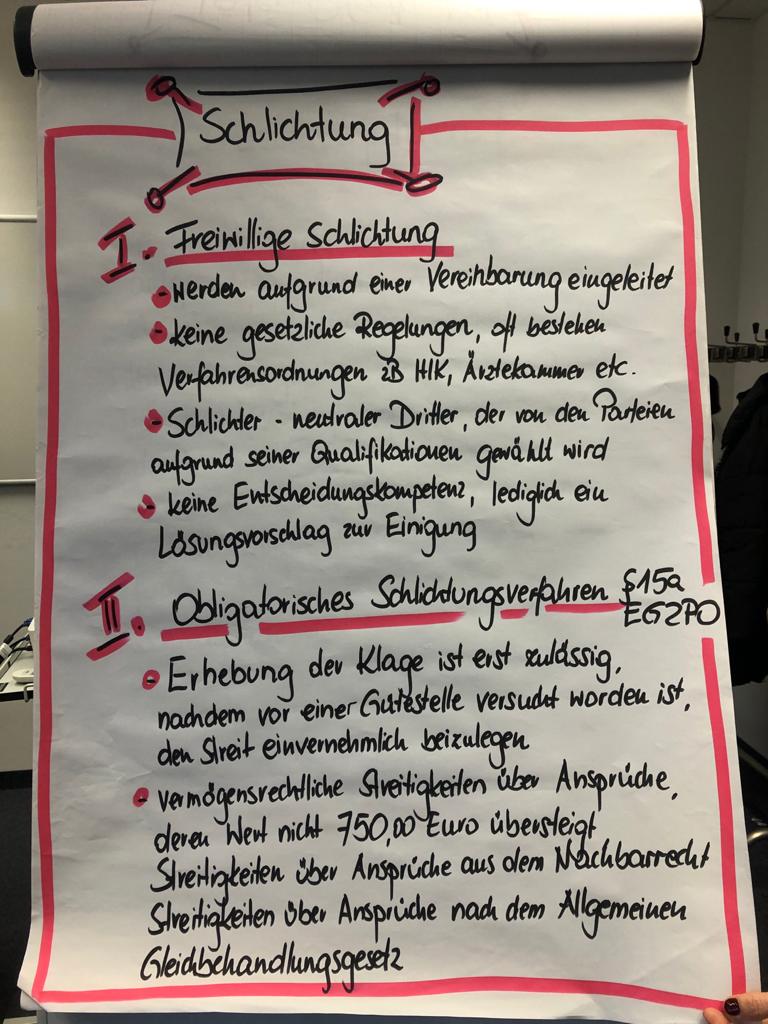 Schlichtung
I. Freiwillige Schlichtung
- werden aufgrund einer Vereinbarung eingeleitet
- keine gesetzliche Regelungen, oft bestehen
Verfahrensordnungen zB HIK, Ärztekammer etc.
- Schlichter - neutraler Dritter, der von den Parteien
aufgrund seiner Qualifikationen gewählt wird
- keine Entscheidungskompetenz, lediglich ein
Lösungsvorschlag zur Einigung
II. Obligatorisches Schlichtungsverfahren §15a
EGZPO
- Erhebung der Klage ist erst zulässig,
nachdem vor einer Gütestelle versucht worden ist,
den Streit einvernehmlich beizulegen
- vermögensrechtliche Streitigkeiten über Ansprüche,
deren Wert nicht 750,00 Euro übersteigt
Streitigkeiten über Ansprüche aus dem Nachbarrecht
Streitigkeiten über Ansprüche nach dem Allgemeinen
Gleichbehandlungsgesetz